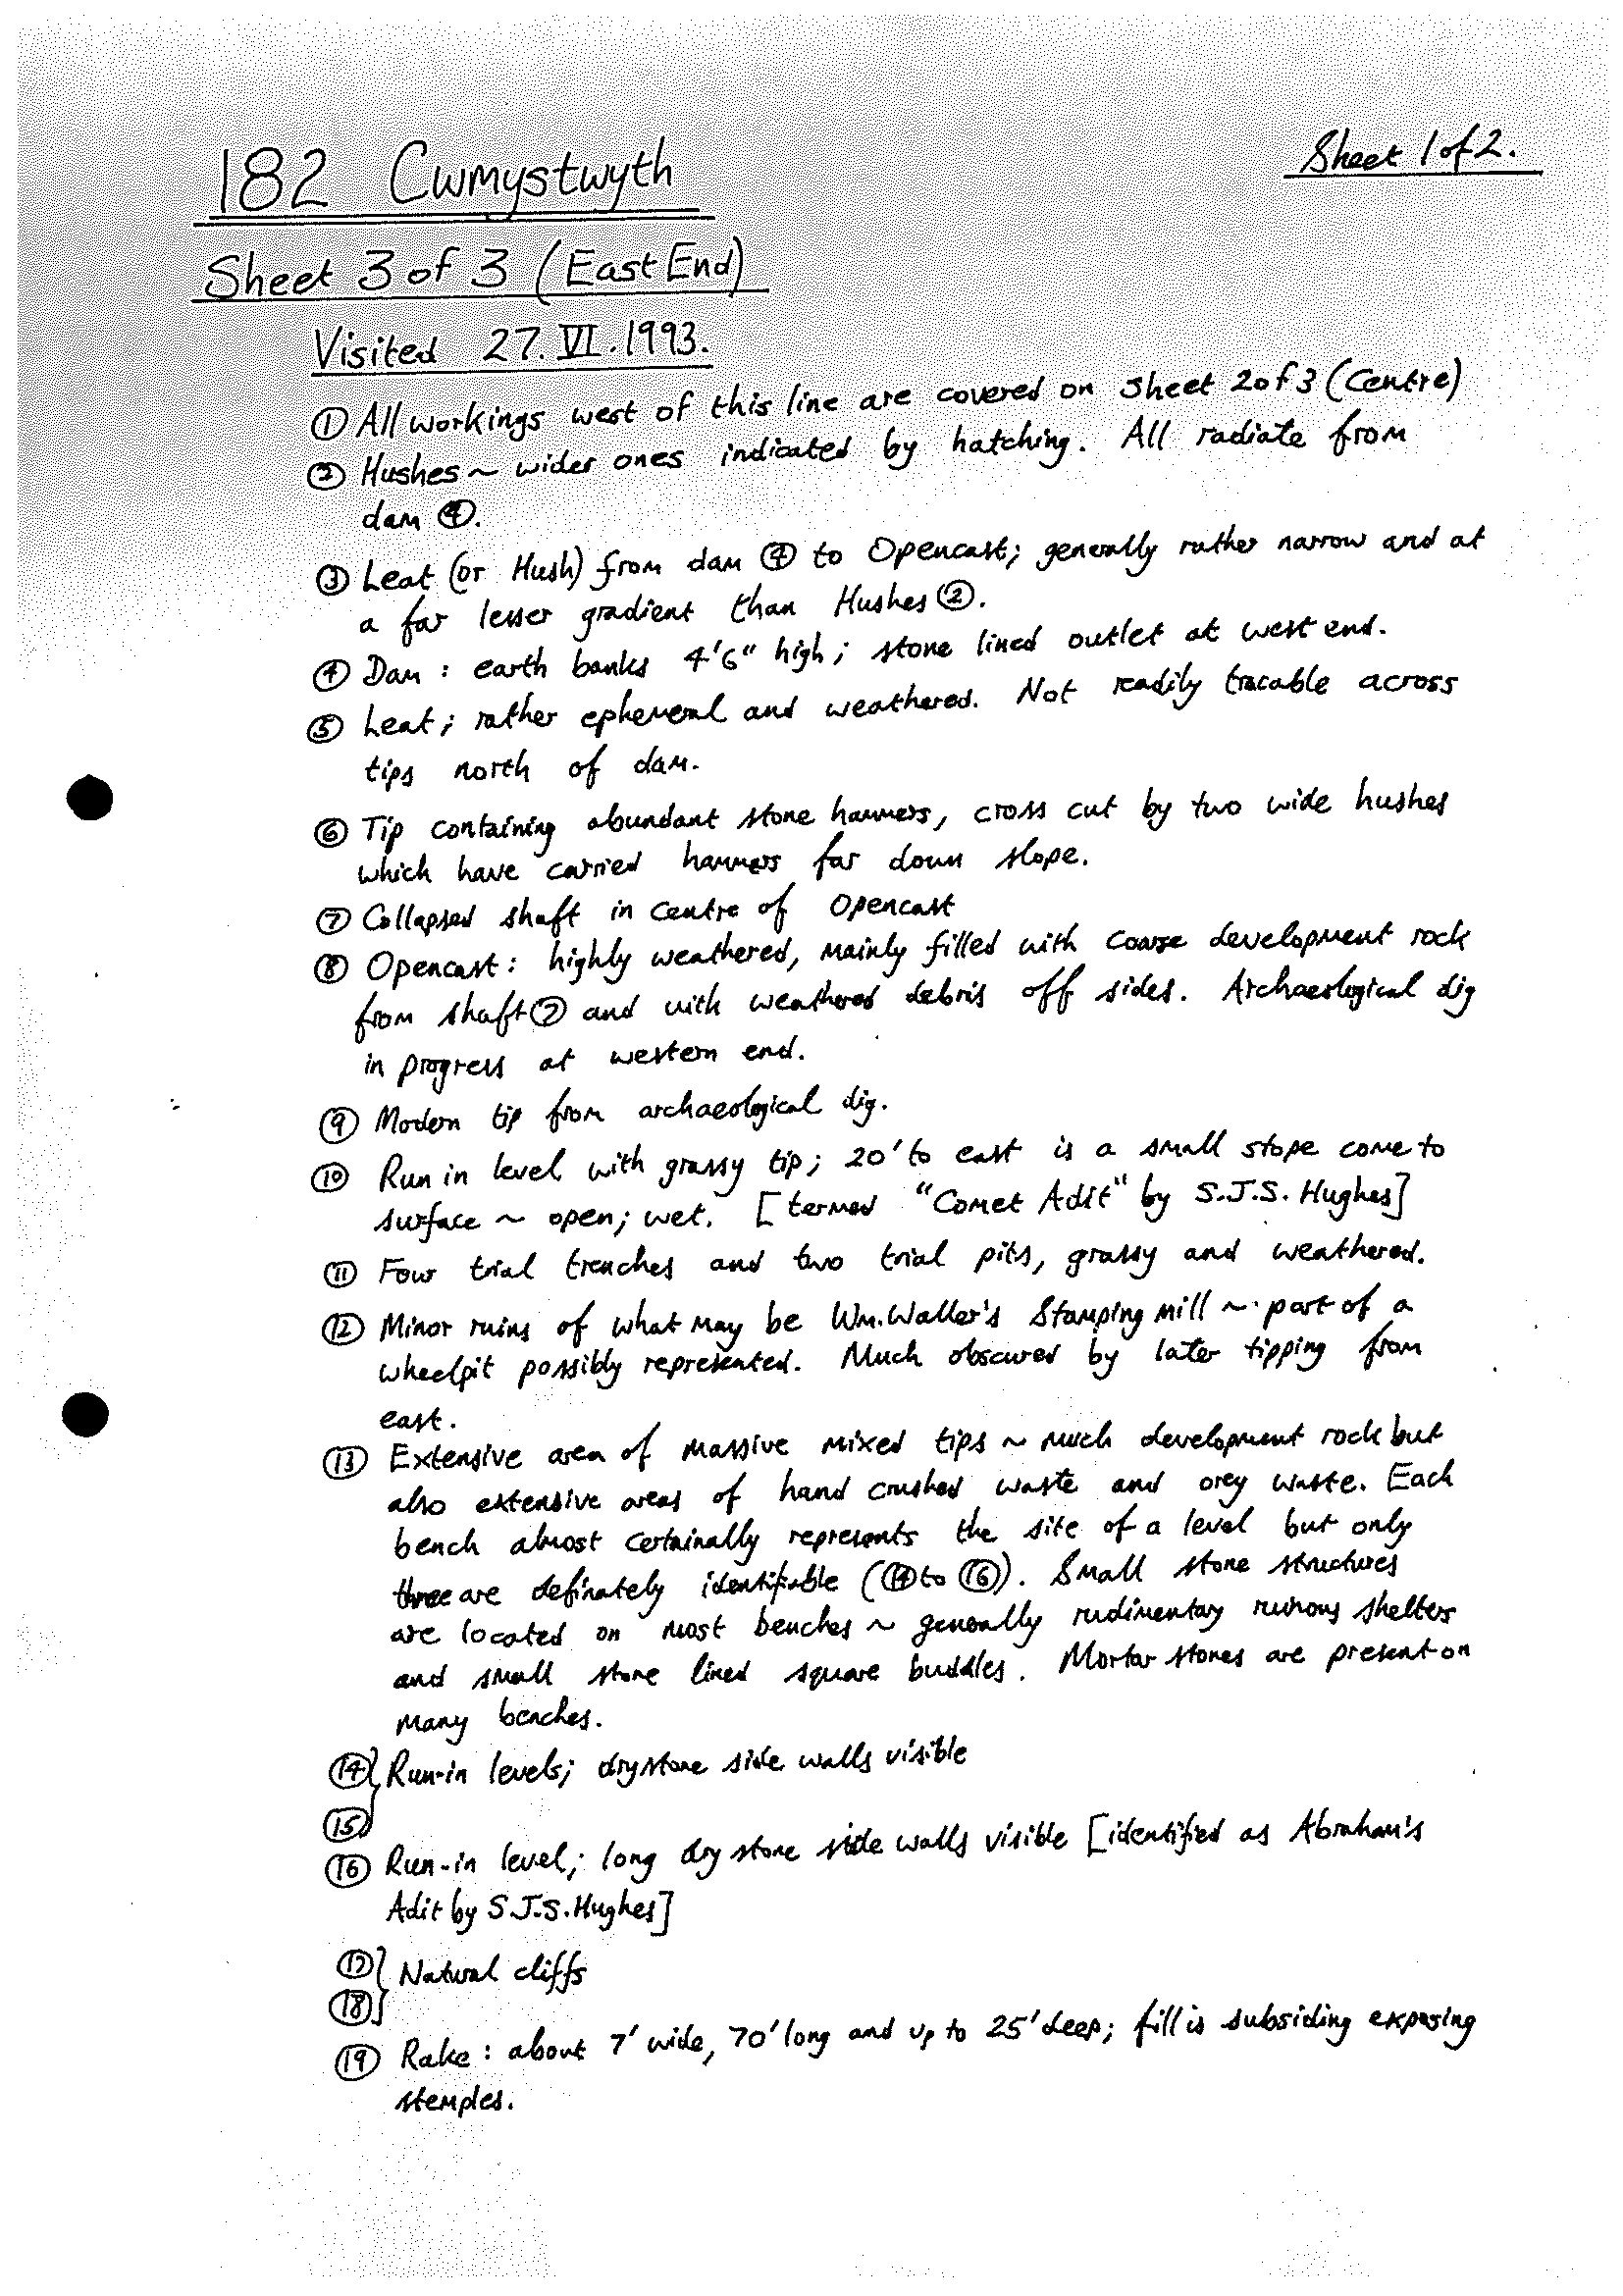 182 Cwmystwyth
Sheet 1 of 2.
Sheet 3 of 3 (East End)
Visited 27.VI.1993.
① All workings west of this line are covered on sheet 2 of 3 (Centre)
② Hushes ~ wider ones indicated by hatching. All radiate from
dam ④.
③ Leat (or Hush) from dam ④ to Opencast; generally rather narrow and at
a far lesser gradient than Hushes ②.
④ Dam : earth banks 4'6" high; stone lined outlet at west end.
⑤ Leat; rather ephemeral and weathered. Not readily tracable across
tips north of dam.
⑥ Tip containing abundant stone hammers, cross cut by two wide hushes
which have carried hammers far down slope.
⑦ Collapsed shaft in centre of Opencast
⑧ Opencast : highly weathered, mainly filled with coarse development rock
from shaft ⑦ and with weathered debris off sides. Archaeological dig
in progress at western end.
⑨ Modern tip from archaeological dig.
⑩ Run in level with grassy tip; 20' to east is a small stope come to
surface ~ open; wet. [termed "Comet Adit" by S.J.S. Hughes]
⑪ Four trial trenches and two trial pits, grassy and weathered.
⑫ Minor ruins of what may be Wm. Waller's Stamping mill ~ part of a
wheelpit possibly represented. Much obscured by later tipping from
east.
⑬ Extensive area of massive mixed tips ~ much development rock but
also extensive areas of hand crushed waste and orey waste. Each
bench almost certainally represents the site of a level but only
three are definately identifiable (⑭ to ⑯). Small stone structures
are located on most benches ~ generally rudimentary ruinous shelters
and small stone lined square buddles. Mortar stones are present on
many benches.
⑭ } Run-in levels; drystone side walls visible
⑮
⑯ Run-in level; long dry stone side walls visible [identified as Abraham's
Adit by S.J.S. Hughes]
⑰ } Natural cliffs
⑱
⑲ Rake : about 7' wide, 70' long and up to 25' deep; fill is subsiding exposing
stemples.